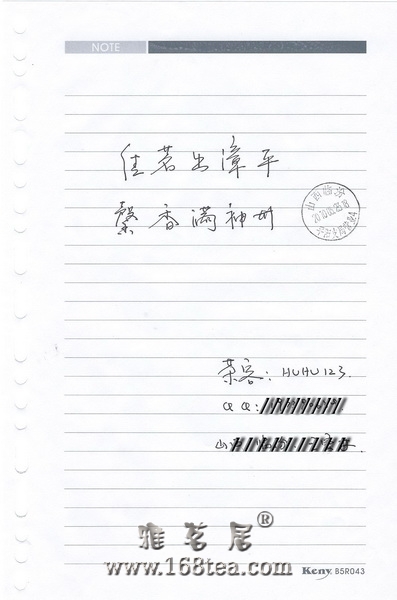 NOTE
佳茗出漳平
馨香满神州
山西临汾
茶客: HUHU123.
QQ:
山
雅茗居®
www.168tea.com
Keny B5R043